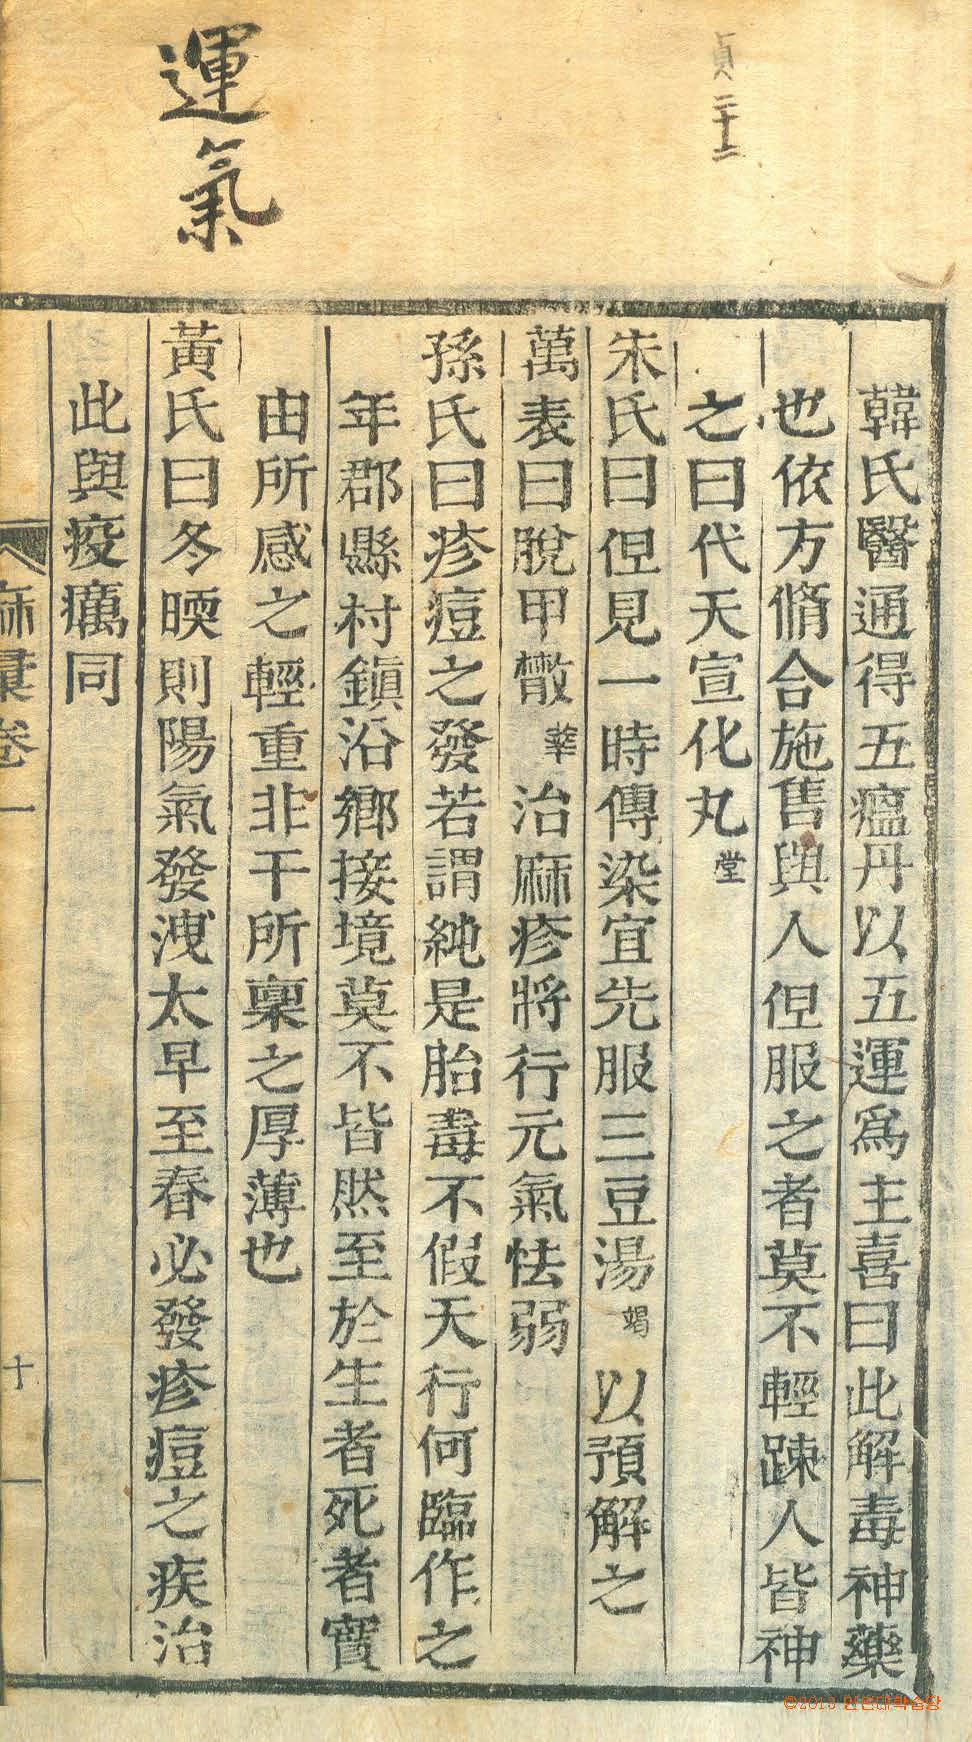 貞二十二
運氣
韓氏醫通得五瘟丹以五運爲主喜曰此解毒神藥
也依方脩合施售與人但服之者莫不輕踈人皆神
之曰代天宣化丸堂
朱氏曰但見一時傳染宜先服三豆湯竭以預解之
萬表曰脫甲散華治麻疹將行元氣怯弱
孫氏曰疹痘之發若謂純是胎毒不假天行何臨作之
年郡縣村鎭沿鄉接境莫不皆然至於生者死者實
由所感之輕重非干所稟之厚薄也
黃氏曰冬暖則陽氣發洩太早至春必發疹痘之疾治
此與疫癘同
麻彙卷一
十一
©2013